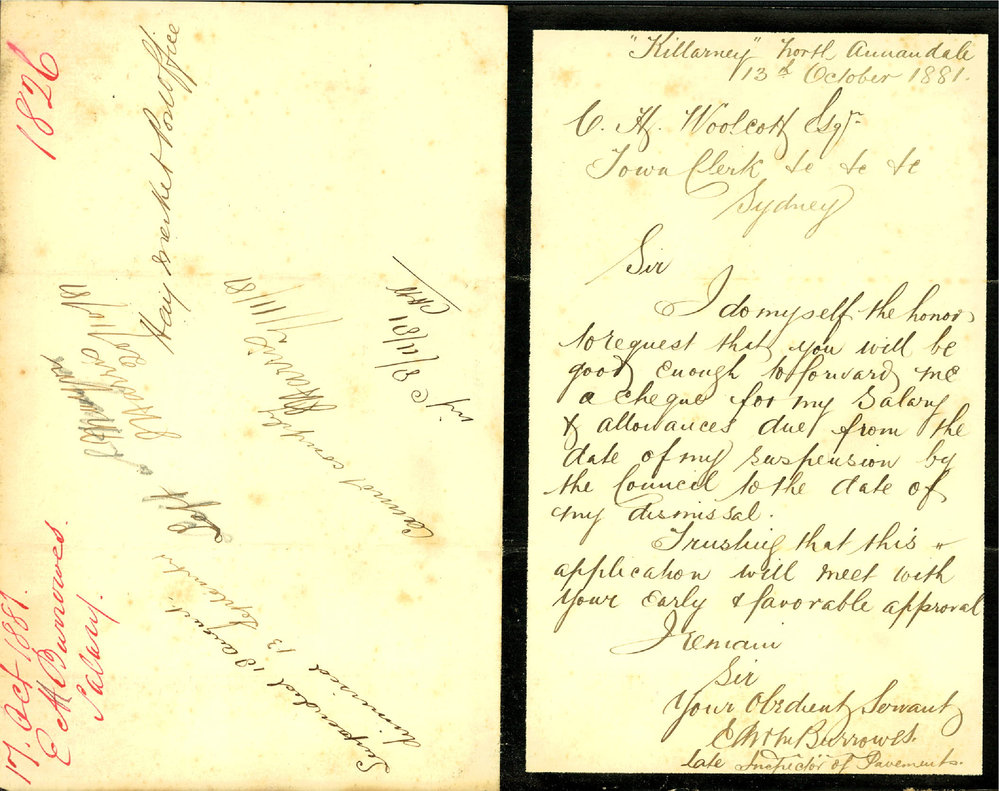 1826
17. Oct 1881.
E M Burrowes.
Salary.
Haymarket Post Office
26/10/81
Suspended 18 August.
dismissed 13 September
Left
Cannot comply
7/11/81
8/11/81
"Killarney" North Annandale
13th October 1881.
C. H. Woolcott Esqr.
Town Clerk &c &c &c
Sydney
Sir
I do myself the honor
to request that you will be
good enough to forward me
a cheque for my Salary
& allowances due from the
date of my suspension by
the Council to the date of
my dismissal.
Trusting that this
application will meet with
your early & favorable approval
I remain
Sir
Your Obedient Servant
Burrowes.
late Inspector of Pavements.